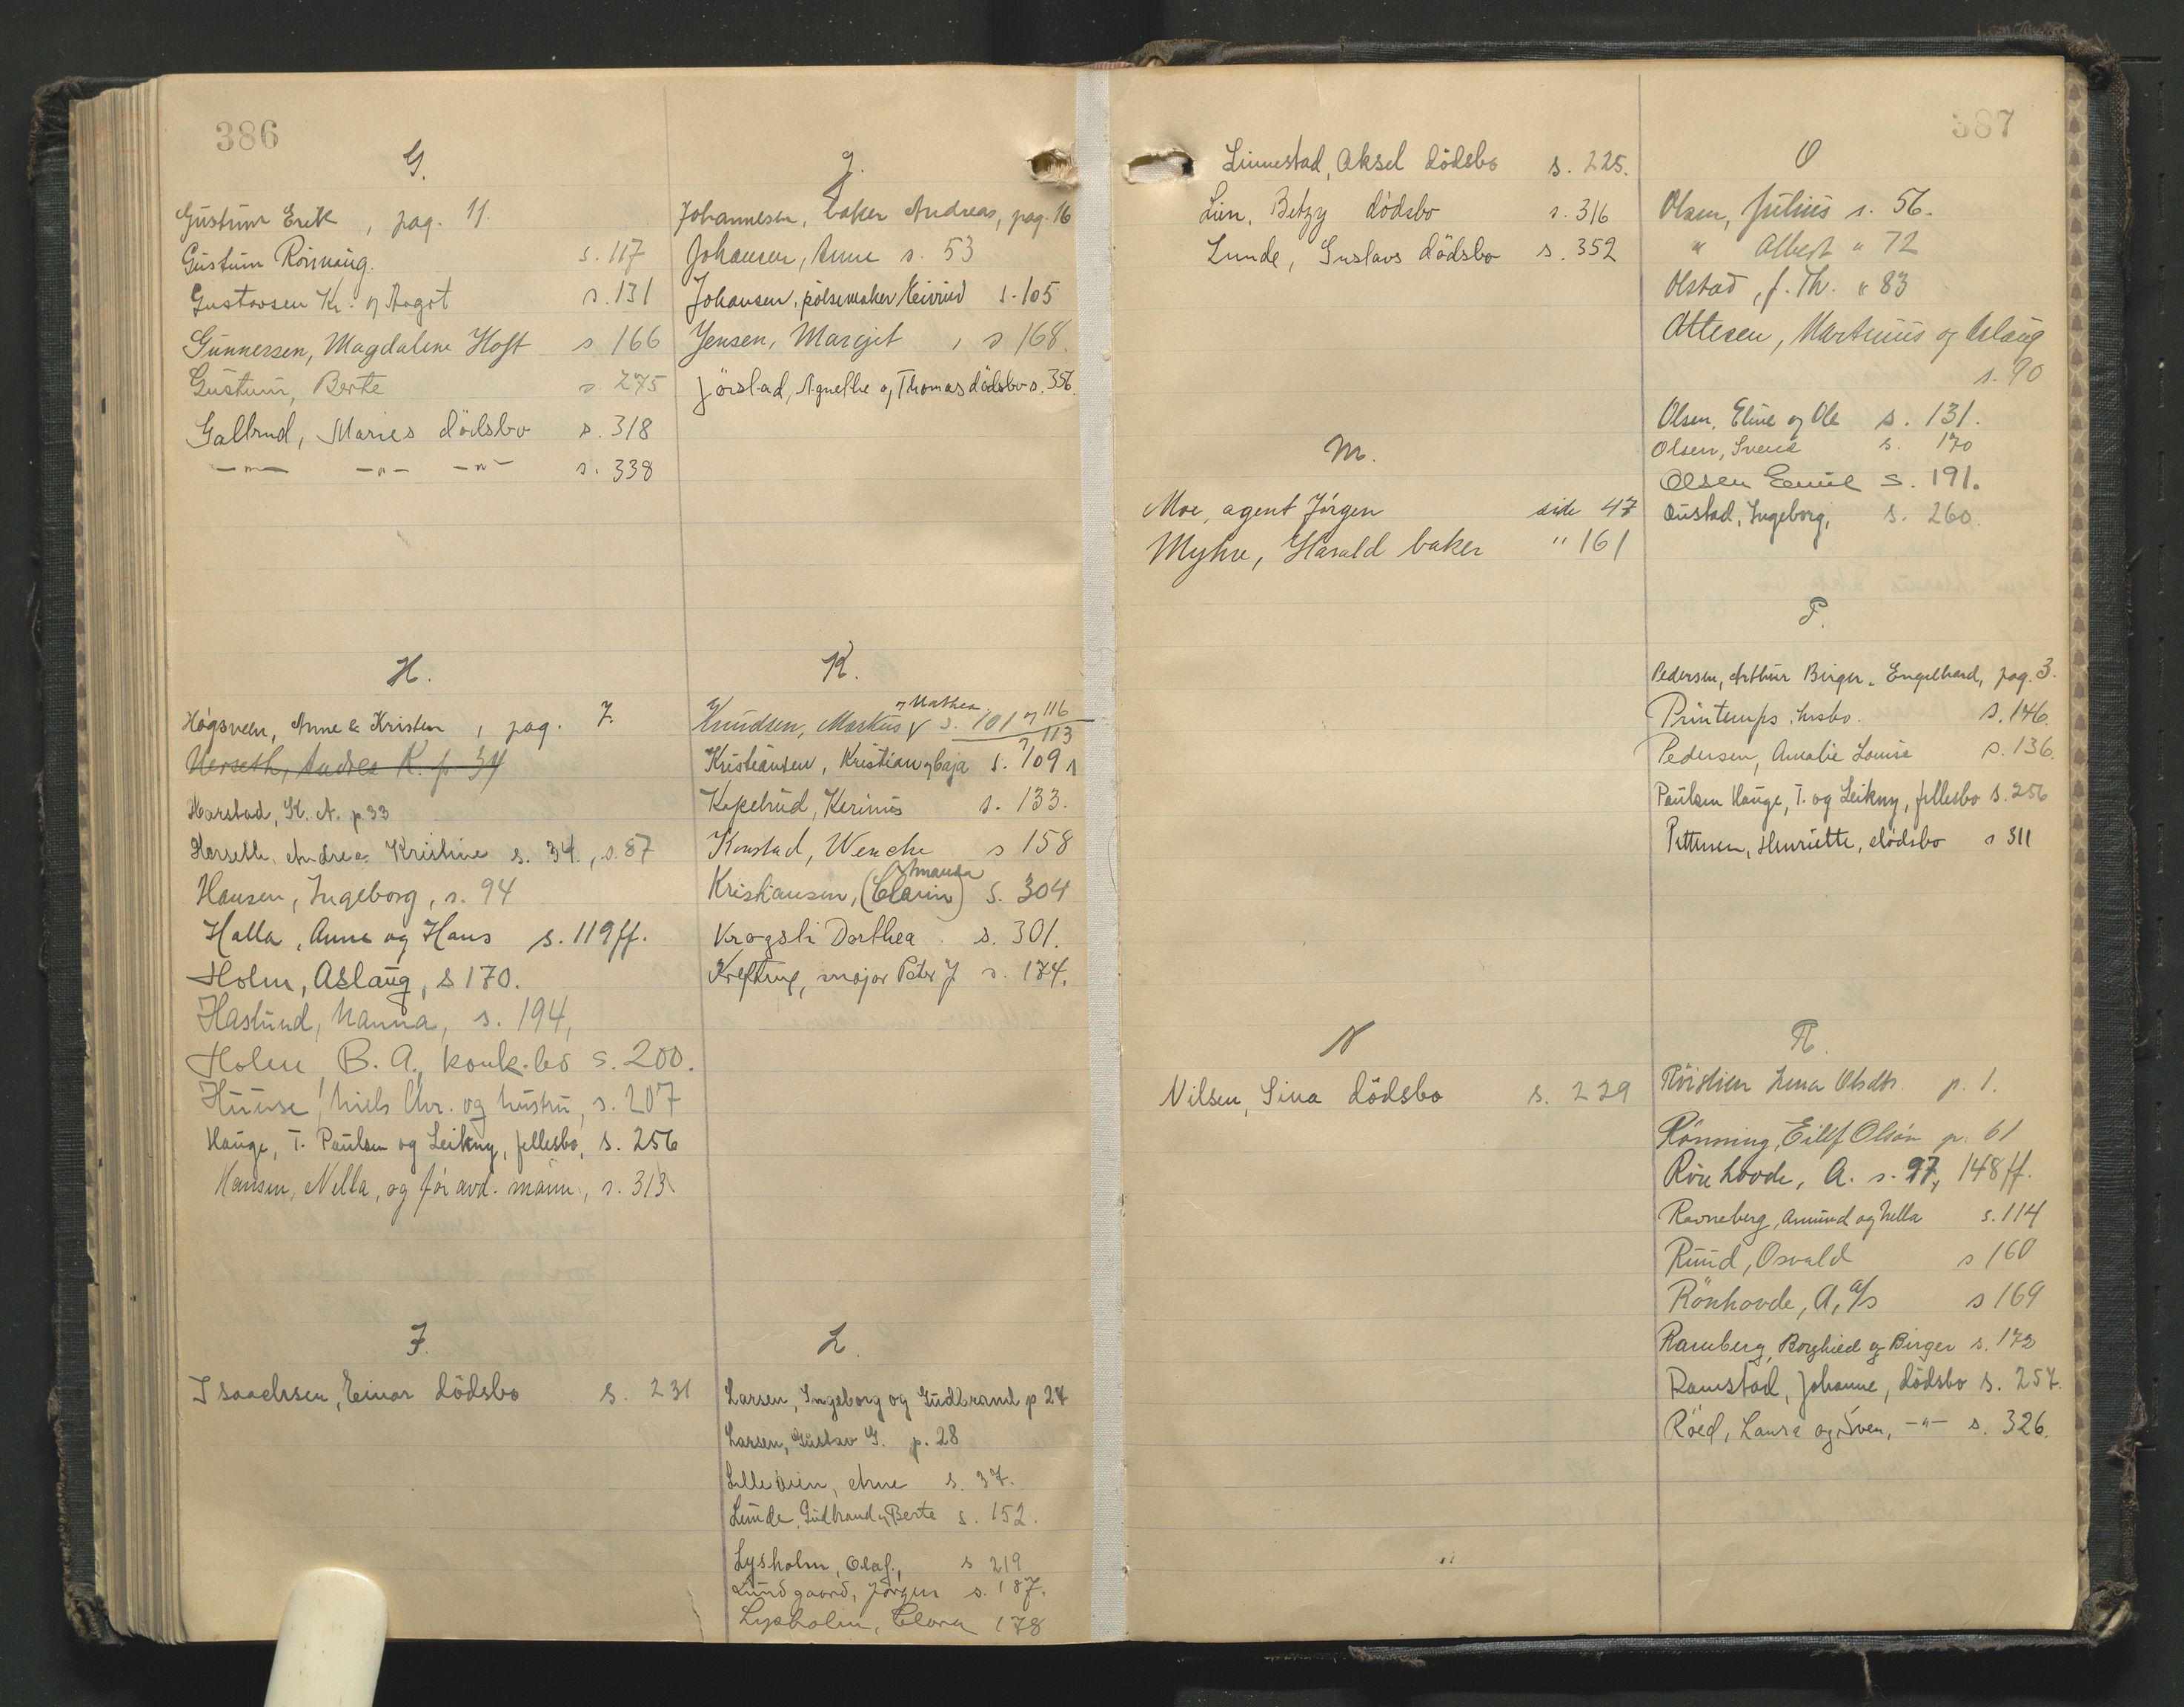 386
G.
Gustum Erik, pag. 11.
Gustum Rönnaug. s. 117
Gustavsen Kr. og Aagot s. 131
Gunnersen, Magdalene Hoft s 166
Gustum, Berte s. 275
Galbrud, Maries dödsbo s. 318
—"— —"— —"— s. 338
H.
Högsveen, Anne & Kristen, pag. 7.
Herseth, Andrea K. p 34
Harstad, K. A. p. 33
Herseth, Andrea Kristine s. 34., s. 87
Hansen, Ingeborg, s. 94
Halla, Anne og Hans s. 119 ff.
Holm, Aslaug, s 170.
Haslund, Nanna, s. 194,
Holm B. A., konk.bo s. 200.
Huuse, Niels Chr. og hustru, s. 207
Hauge, T. Paulsen og Leikny, fellesbo, s. 256
Hansen, Nella, og för avd. mann, s. 313
I.
Isaachsen, Einar dödsbo s. 231
J.
Johannesen, baker Andreas, pag. 16
Johansen, Anne s. 53
Johansen, pölsemaker Eivind s. 105
Jensen, Margit, s 168.
Jörstad, Agnethe og Thomas dödsbo s. 356.
K.
og Mathea
Knudsen, Markus s. 101 og 116
113
Kristiansen, Kristian og Caja s. 109
Kopelrud, Kerinus s. 133.
Konstad, Wenche s 158
Amanda
Kristiansen, (Clarin) s. 304
Krogsli Dorthea s. 301.
Krefting, major Peter J s. 174.
L.
Larsen, Ingeborg og Gudbrand p 27
Larsen, Gustav G. p. 28
Lilleöien, Arne s. 37.
Lunde, Gudbrand og Berte s. 152.
Lysholm, Olaf., s 219
Lundgaard, Jörgen s. 187.
Lysholm, Clara 178
387
Linnestad, Aksel dödsbo s. 225.
Lien, Betzy dödsbo s. 316
Lunde, Gustavs dödsbo s. 352
M.
Moe, agent Jörgen side 47
Myhre, Harald baker " 161
N
Nilsen, Sina dödsbo s. 229
O
Olsen, Julius s. 56.
" Albert " 72
Olstad, J. Th. " 83
Ottesen, Martinius og Aslaug
s. 90
Olsen, Eline og Ole s. 131.
Olsen, Svend s. 170
Olsen Emil s. 191.
Onstad, Ingeborg, s. 260.
P.
Pedersen, Arthur Birger Engelhard, pag. 3.
Printemps hsbo. s. 146.
Pedersen, Amalie Louise s. 136.
Paulsen Hauge, T. og Leikny, fellesbo s. 256
Pettersen, Henriette, dödsbo s 311
R.
Röislien Lena Olsdtr. p. 1.
Rönning, Eilef Olsön p. 61
Rönhovde, A. s. 97, 148 ff.
Ravneberg, Amund og Nella s. 114
Ruud, Osvald s 160
Rönhovde, A, a/s s 169
Ramberg, Borghild og Birger s. 172
Ramstad, Johanne, dödsbo s. 257.
Röed, Laura og Sven, —"— s. 326.